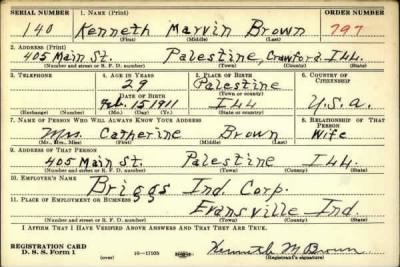 SERIAL NUMBER 1. NAME (Print) ORDER NUMBER
140 Kenneth Marvin Brown 797
(First) (Middle) (Last)
2. ADDRESS (Print)
405 Main St. Palestine, Crawford Ill
(Number and street or R. F. D. number) (Town) (County) (State)
3. TELEPHONE 4. AGE IN YEARS 5. PLACE OF BIRTH 6. COUNTRY OF CITIZENSHIP
29 Palestine
DATE OF BIRTH (Town or county)
Feb. 15 1911 Ill U.S.A.
(Exchange) (Number) (Mo.) (Day) (Yr.) (State or country)
7. NAME OF PERSON WHO WILL ALWAYS KNOW YOUR ADDRESS 8. RELATIONSHIP OF THAT PERSON
Mrs. Catherine Brown Wife
(Mr., Mrs., Miss) (First) (Middle) (Last)
9. ADDRESS OF THAT PERSON
405 Main St. Palestine Ill.
(Number and street or R. F. D. number) (Town) (County) (State)
10. EMPLOYER'S NAME
Briggs Ind. Corp.
11. PLACE OF EMPLOYMENT OR BUSINESS
Evansville Ind.
(Number and street or R. F. D. number) (Town) (County) (State)
I AFFIRM THAT I HAVE VERIFIED ABOVE ANSWERS AND THAT THEY ARE TRUE.
REGISTRATION CARD
D. S. S. Form 1 (over) 16—17105 Kenneth M Brown
(Registrant's signature)